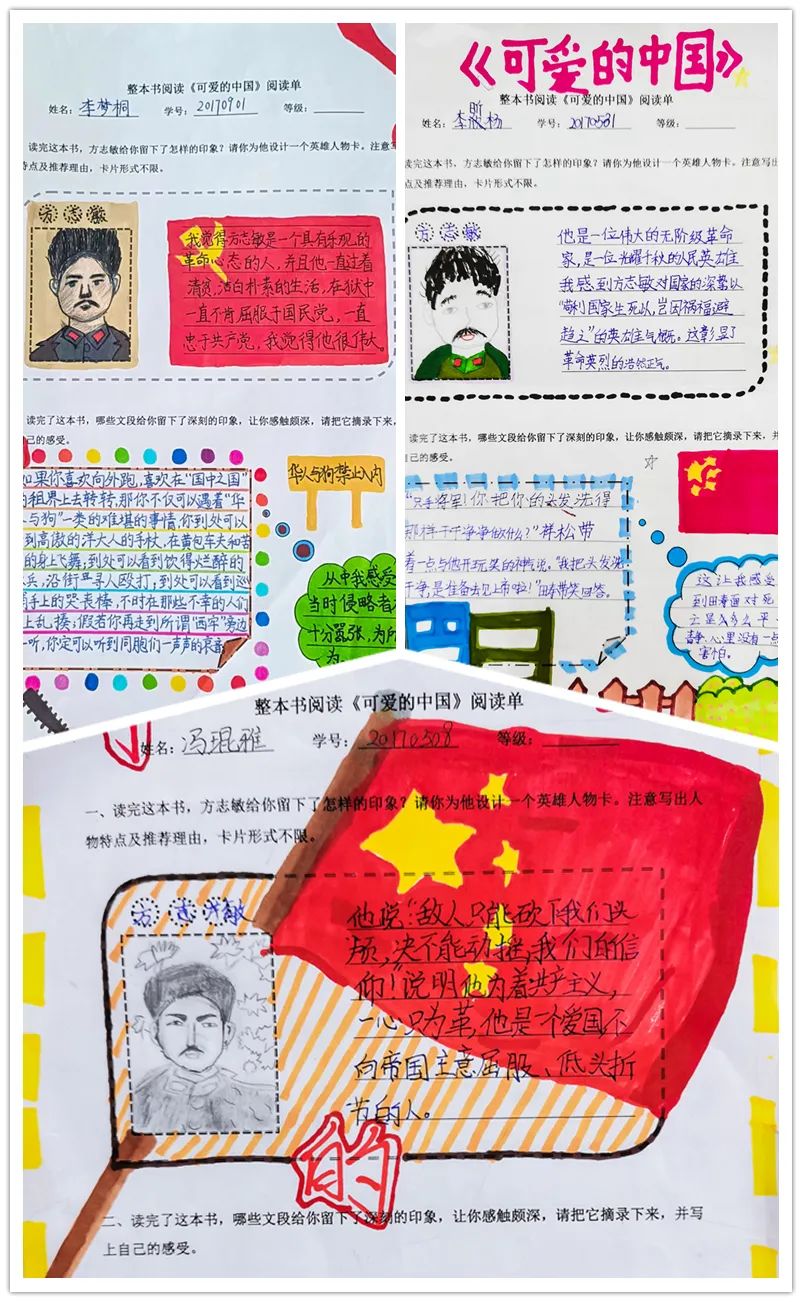 整本书阅读《可爱的中国》阅读单
姓名：李梦桐 学号：20170901 等级：
读完这本书，方志敏给你留下了怎样的印象？请你为他设计一个英雄人物卡。注意写
特点及推荐理由，卡片形式不限。
方志敏
我觉得方志敏是一个具有乐观的
革命心态的人，并且他一直过着
清贫，洁白朴素的生活，在狱中
一直不肯屈服于国民党，一直
忠于共产党，我觉得他很伟大。
读完了这本书，哪些文段给你留下了深刻的印象，让你感触颇深，请把它摘录下来，
己的感受。
如果你喜欢向外跑，喜欢在“国中之国”
的租界上去转转，那你不仅可以遇着“华
人与狗”一类的难堪的事情，你到处可以
到高傲的洋大人的手杖，在黄包车夫和苦
的身上飞舞，到处可以看到饮得烂醉的
兵，沿街寻人殴打，到处可以看到巡
手上的哭丧棒，不时在那些不幸的人们
上乱揍，假若你再走到所谓“西牢”旁边
听，你定可以听到同胞们一声声的哀音
华人与狗禁止入内
从中我感受
当时侵略者
十分嚣张，为所
为
《可爱的中国》
整本书阅读《可爱的中国》阅读单
姓名：李 杨 学号：20170531 等级：
读完这本书，方志敏给你留下了怎样的印象？请你为他设计一个英雄人物卡。注意写出
点及推荐理由，卡片形式不限。
方志敏
他是一位伟大的无阶级革命
家，是一位光耀千秋的人民英雄
我感到方志敏对国家的深挚以
国家生死以，岂因祸福避
趋之”的英雄主气概。这彰显了
革命英烈的浩然正气。
读完了这本书，哪些文段给你留下了深刻的印象，让你感触颇深，请把它摘录下来，并
己的感受。
“只手将军！你把你的头发洗得
那样干干净净做什么？”祥松带
着一点与他开玩笑的神气说。“我把头发洗
干净，是准备去见上帝啦！”田寿带笑回答。
这让我感受
到田寿面对死
亡是多么平
静，心里没有一点
害怕。
整本书阅读《可爱的中国》阅读单
姓名：冯琨雅 学号：20170508 等级：
一、读完这本书，方志敏给你留下了怎样的印象？请你为他设计一个英雄人物卡。注意写出人
物特点及推荐理由，卡片形式不限。
方志敏
他说：“敌人只能砍下我们头
颅，决不能动摇，我们的信
仰！”说明他为着共产主义，
一心只为革，他是一个爱国不
向帝国主意屈服、低头折
节的人。
的
二、读完了这本书，哪些文段给你留下了深刻的印象，让你感触颇深，请把它摘录下来，并写
上自己的感受。